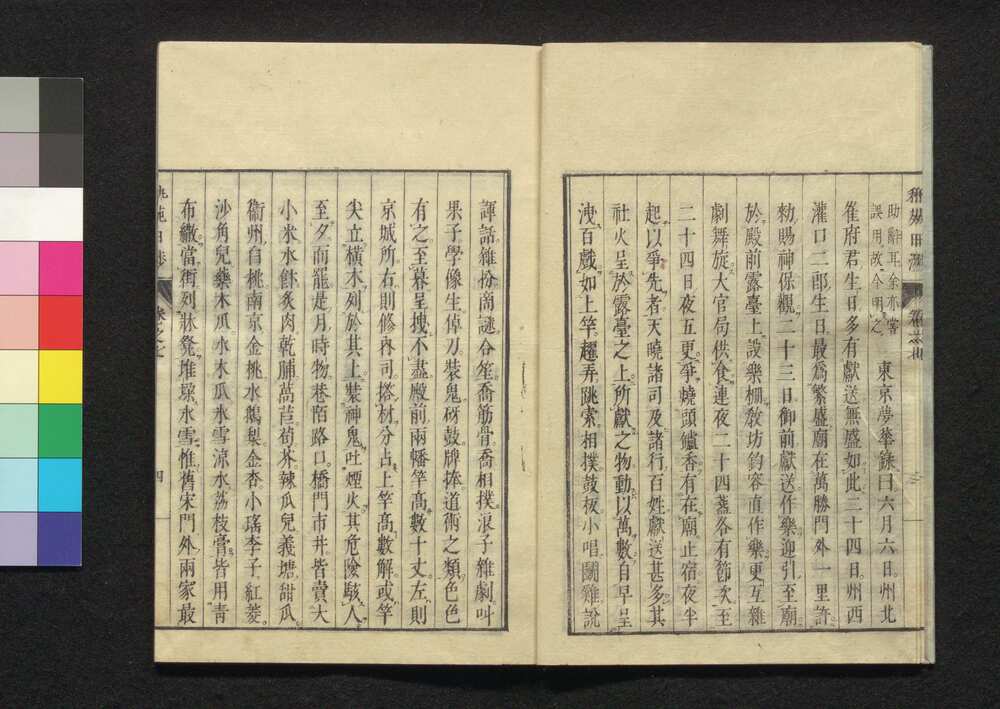 助辭耳余亦嘗
誤用故今明之
東京夢華録曰六月六日州北
崔府君生日多有獻送無盛如此二十四日州西
灌口二郎生日最爲繁盛廟在萬勝門外一里許
勑賜神保觀二十三日御前獻送作樂迎引至廟
於殿前露臺上設樂棚敎坊鈞容直作樂更互雜
劇舞旋大官局供食連夜二十四盞各有節次至
二十四日夜五更爭燒頭爐香有在廟止宿夜半
起以爭先者天曉諸司及諸行百姓獻送甚多其
社火呈於露臺之上所獻之物動以萬數自早呈
洩百戲如上竿趯弄跳索相撲鼓板小唱鬪雞說
諢話雜扮商謎合笙喬筋骨喬相撲浪子雜劇叫
果子學像生倬刀裝鬼砑鼓牌捧道術之類色色
有之至暮呈拽不盡殿前兩幡竿高數十丈左則
京城所右則修內司搭材分占上竿高數解或竿
尖立橫木列於其上裝神鬼吐煙火其危險駭人
至夕而罷是月時物巷陌路口橋門市井皆賣大
小米水飰炙肉乾脯萵苣筍芥辣瓜兒義塘甜瓜
衞州白桃南京金桃水鵝梨金杏小瑤李子紅菱
沙角兒藥木瓜水木瓜氷雪涼水荔枝膏皆用靑
布繖當街列牀凳堆垜氷雪惟舊宋門外兩家最
四